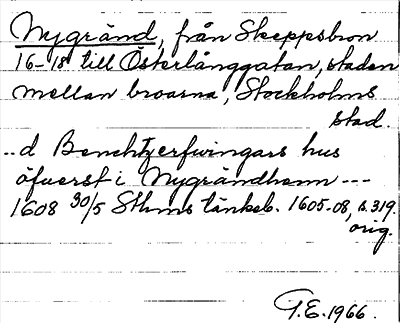 Nygränd, från Skeppsbron
16-18 till Österlånggatan, staden
mellan broarna, Stockholms
stad.
..d Benchtzerfwingars hus
öfuerst i Nygrändhenn ---
1608 30/5 Sthms tänkeb. 1605-08, s. 319.
orig.
G.E. 1966.